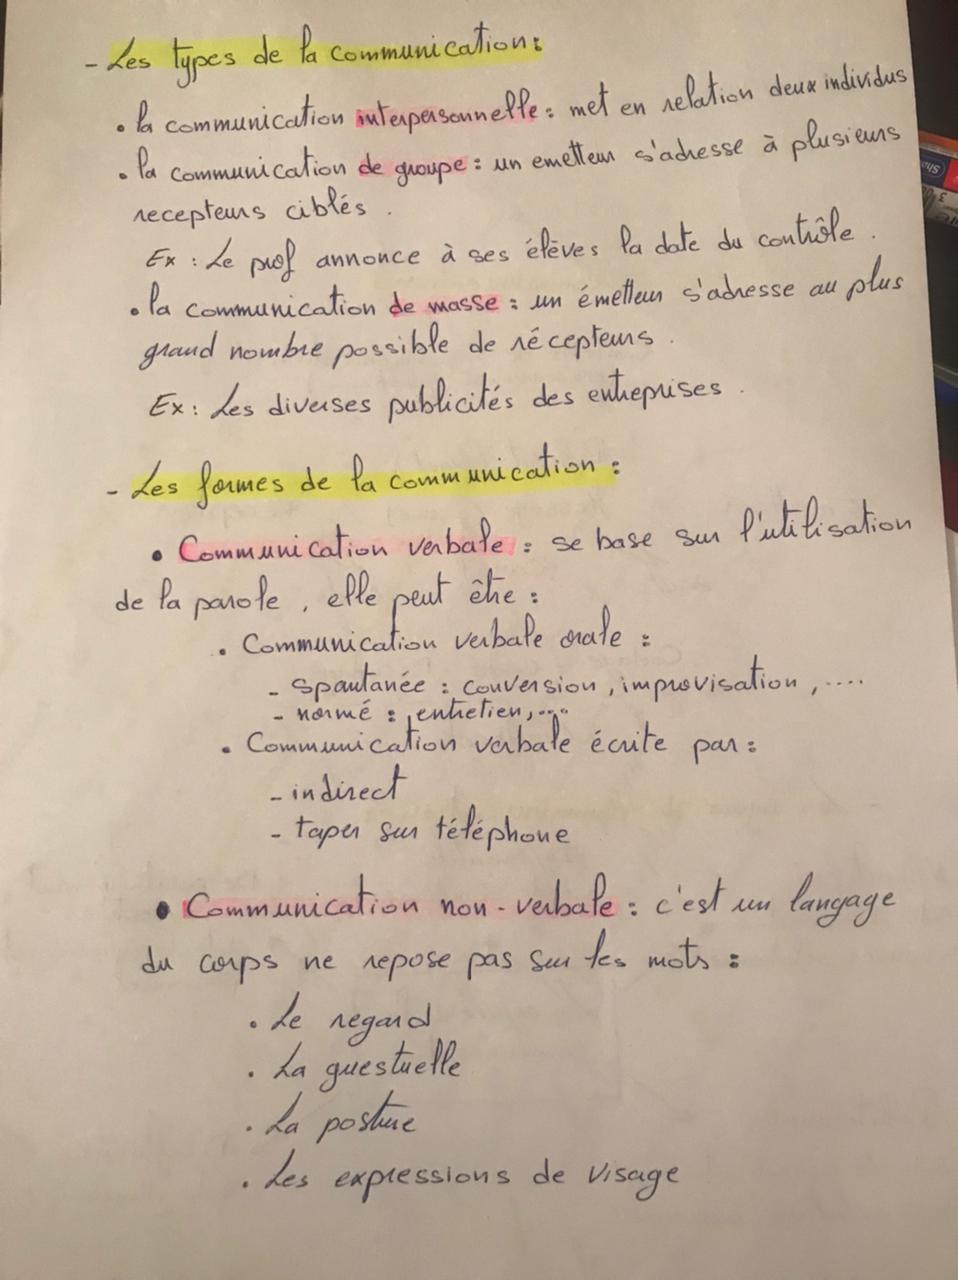 - Les types de la communication :
• la communication interpersonnelle : met en relation deux individus
• la communication de groupe : un emetteur s'adresse à plusieurs
recepteurs ciblés .
Ex : Le prof annonce à ses élèves la date du contrôle .
• la communication de masse : un émetteur s'adresse au plus
grand nombre possible de récepteurs .
Ex : Les diverses publicités des entreprises .
- Les formes de la communication :
• Communication verbale : se base sur l'utilisation
de la parole , elle peut être :
• Communication verbale orale :
- spontanée : conversion , improvisation , ....
- normé : entretien, ...
• Communication verbale écrite par :
- indirect
- taper sur téléphone
• Communication non - verbale : c'est un langage
du corps ne repose pas sur les mots :
• Le regard
• La guestuelle
• La posture
• Les expressions de visage